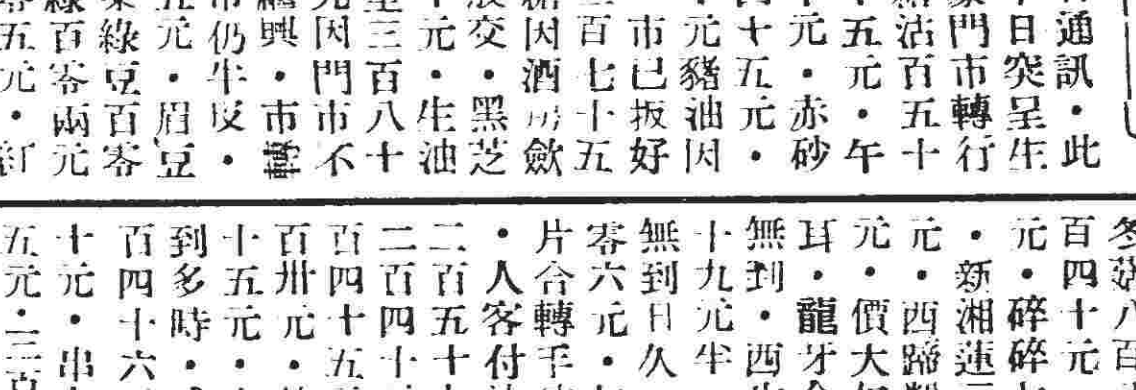 通訊·此
日突呈生
門市轉行
沽百五十
五元·午
元·赤砂
十五元·
元豬油因
市已扳好
百七十五
因酒房歛
交·黑芝
元·生油
三百八十
因門市不
興·市轉
仍牛皮·
元·眉豆
綠豆百零
百零兩元
五元·紅
冬菇八百
百四十元
元·碎碎
·新湘蓮
元·西蹄
元·價大
耳·龍牙
無到·西
十九元半
無到日久
零六元·
片合轉手
·人客付
二百五十
二百四十
百四十五
百卅元·
十五元·
到多時·
百四十六
十元·串
五元·二百